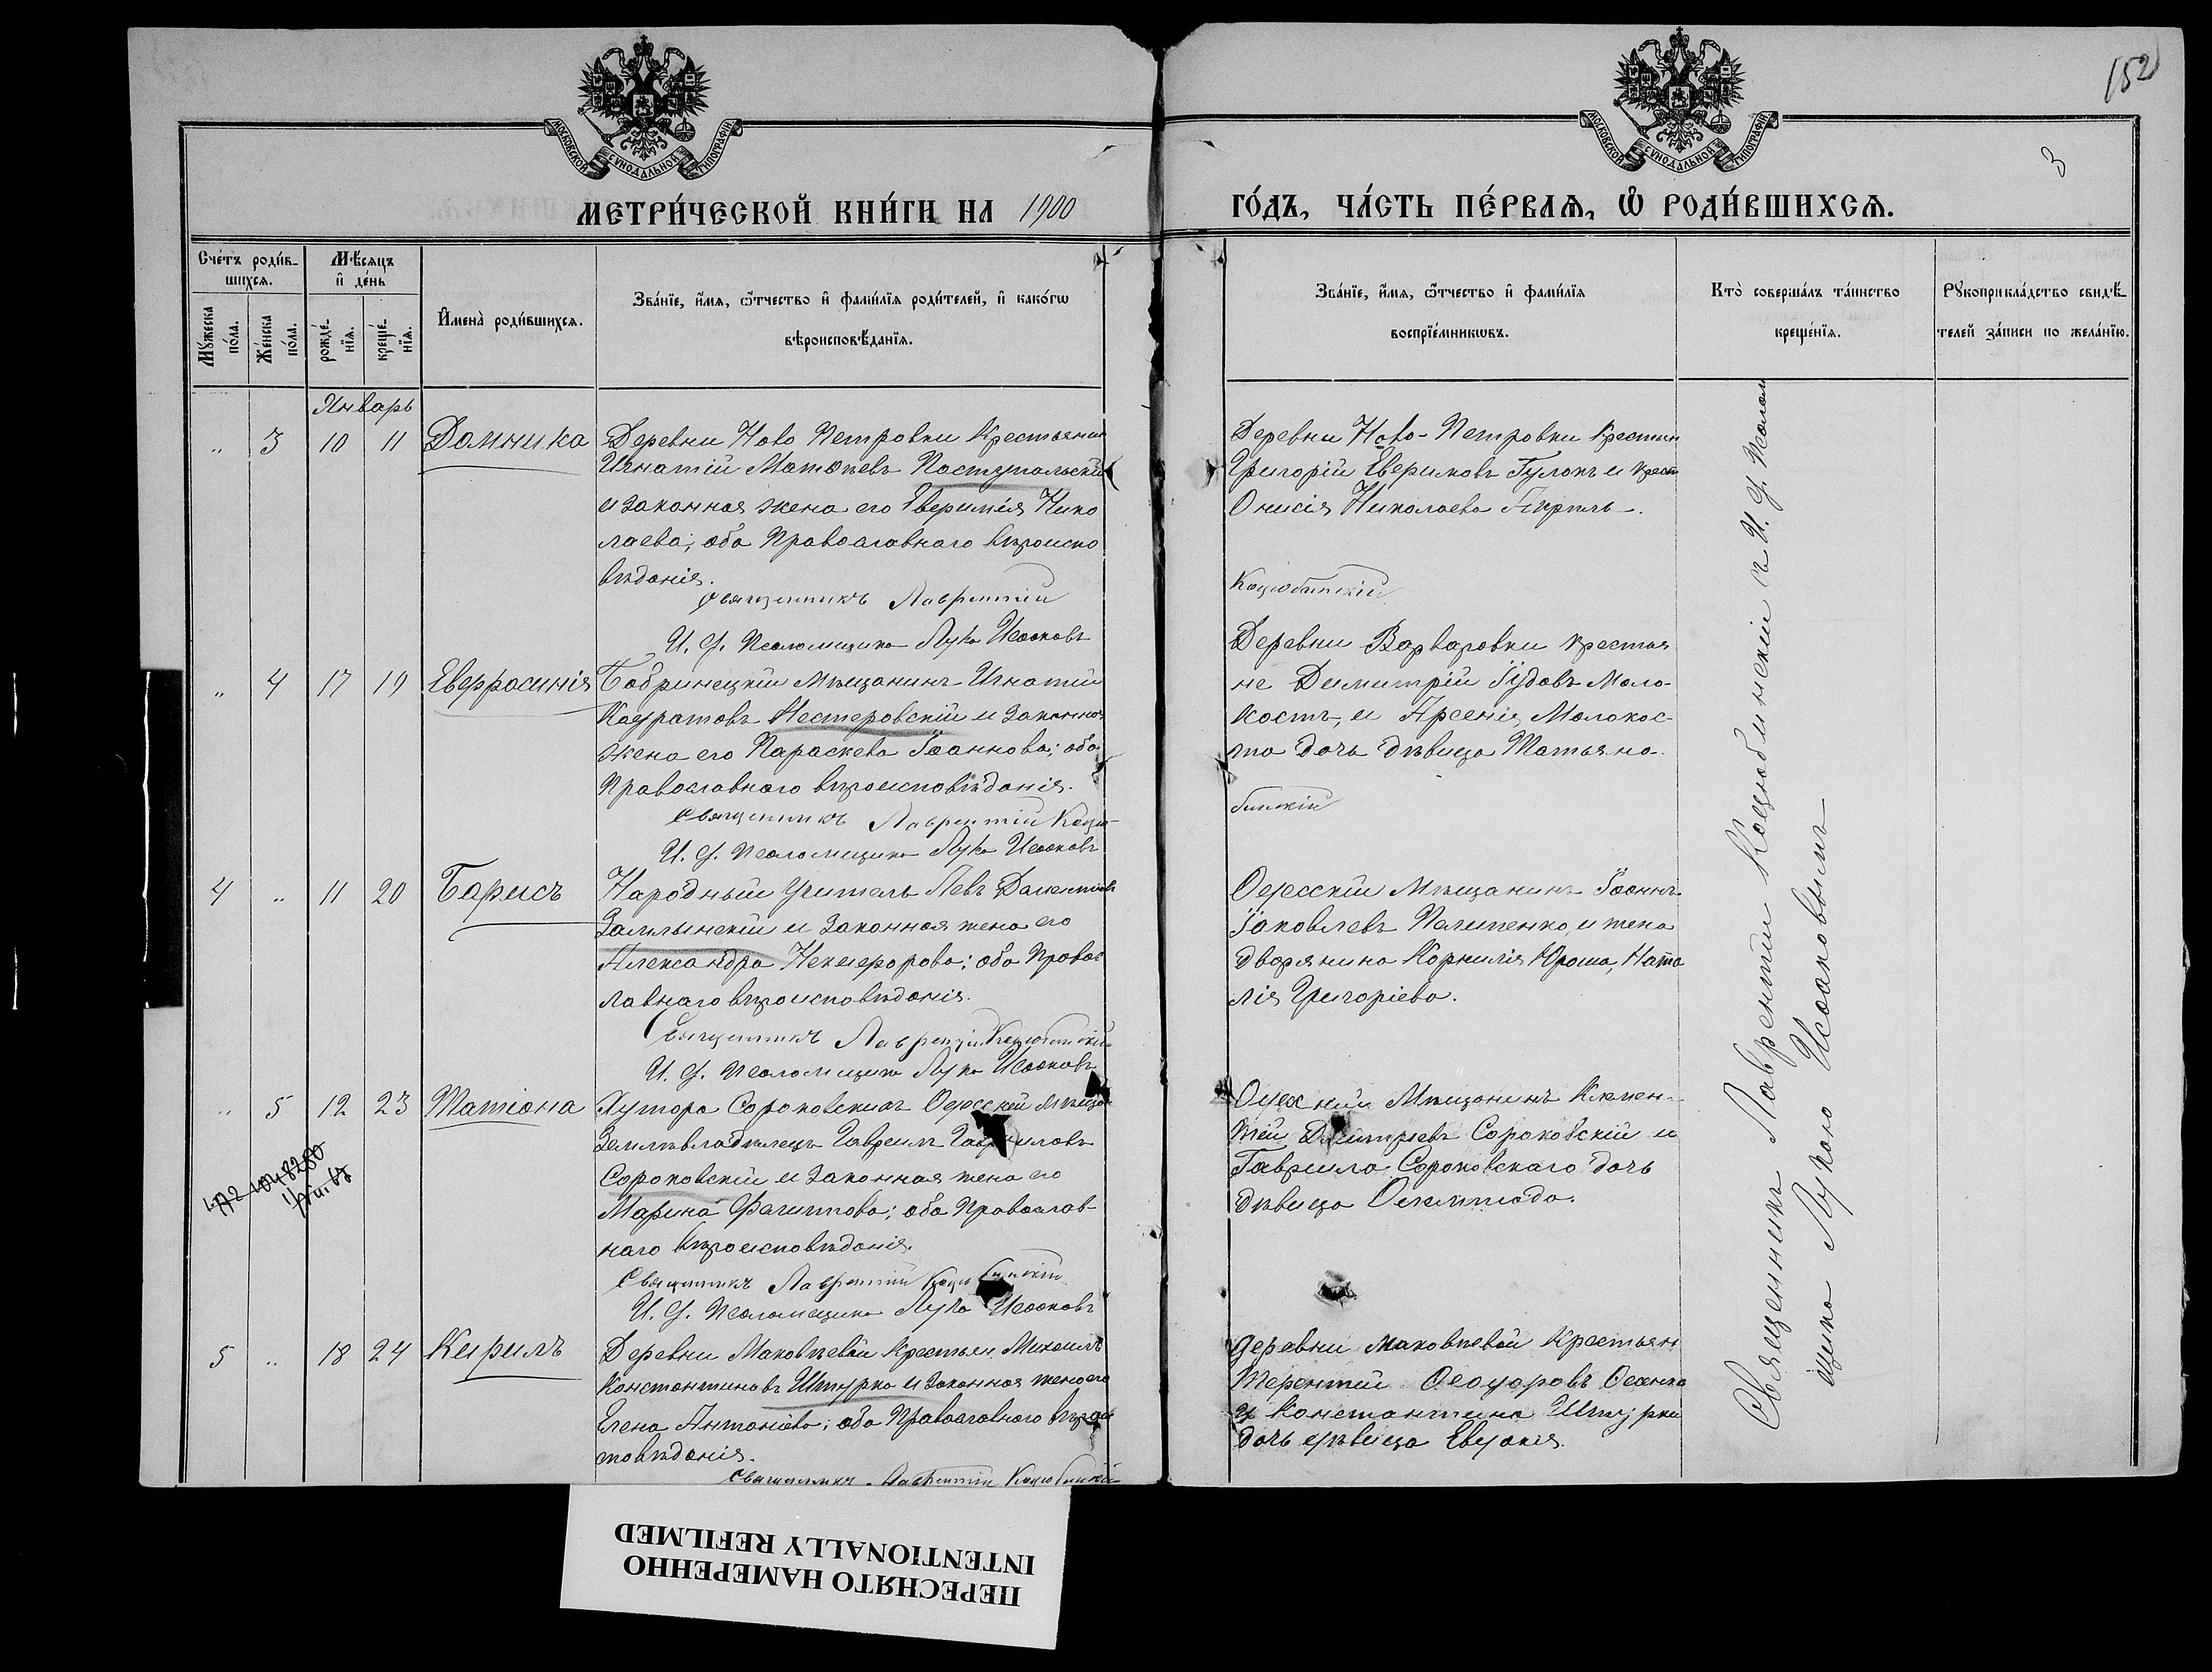 152
3
МОСКОВСКОЙ СѴНОДАЛЬНОЙ ТИПОГРАФІИ
МОСКОВСКОЙ СѴНОДАЛЬНОЙ ТИПОГРАФІИ
МЕТРИ́ЧЕСКОЙ КНИ́ГИ НА 1900
ГО́ДЪ, ЧА́СТЬ ПЕ́РВАѦ, Ѽ РОДИ́ВШИХСѦ.
Сче́тъ роди́в-
шихсѧ.
Мѣ́сѧцъ
и҆ де́нь
Мꙋ́жеска по́ла.
Же́нска по́ла.
рожде́-
нїѧ.
креще́-
нїѧ.
И҆мена̀ роди́вшихсѧ.
Зва́нїе, и҆́мѧ, ѻ҆́тчество и҆ фами́лїѧ роди́телей, и҆ како́гѡ
вѣроисповѣ́данїѧ.
Зва́нїе, и҆́мѧ, ѻ҆́тчество и҆ фами́лїѧ
воспрїе́мникѡвъ.
Кто̀ соверша́лъ та́инство
креще́нїѧ.
Рꙋкоприкла́дство свидѣ́-
телей за́писи по жела́нїю.
Январь
" 3 10 11 Домника
Деревни Ново Петровки Крестьянин
Игнатій Матѳеевъ Поступальскій
и законная жена его Евфимія Нико
лаева; оба Православнаго вѣроиспо
вѣданія.
Священникъ Лаврентій
И. д. Псаломщика Лука Исааковъ
Деревни Ново-Петровки Крестин
Григорій Евфимовъ Гулокъ и крест
Онисія Николаева
Коцюбинскій
" 4 17 19 Евфросинія
Бобринецкій мѣщанинъ Игнатій
Кодратовъ Нестеровскій и законная
жена его Параскева Іоаннова; оба
Православнаго вѣроисповѣданія.
Священникъ Лаврентій Коцю-
И. д. Псаломщика Лука Исааковъ
Деревни Варваровки крестья
не Димитрій Іудовъ Моло-
костъ, и Арсенія Молокос-
та дочь дѣвица Татьяна.
бинскій
4 " 11 20 Борисъ
Народный Учитель Левъ
и законная жена его
Александра Никифорова; оба Правос
лавнаго вѣроисповѣданія.
Священникъ Лаврентій Коцюбинскій
И. д. Псаломщика Лука Исааковъ
Одесскій Мѣщанинъ Іоаннъ
Іаковлевъ Пилипенко, и жена
дворянина Корнилія Яроша, Ната
лія Григоріева.
" 5 12 23 Татіана
Хутора Сороковскихъ Одесскій мѣщан
Землевладѣлецъ Гавріилъ Гавріиловъ
Сороковскій и законная жена его
Марина Филиппова; оба Православ-
наго вѣроисповѣданія.
Священникъ Лаврентій Коцюбинскій
И. д. Псаломщика Лука Исааковъ
Одесскій Мѣщанинъ Климен-
тій Димитріевъ Сороковскій и
Гавриила Сороковскаго дочь
дѣвица Олимпіада.
5 " 18 24 Кирилъ
Деревни Маковѣевой Крестьян Михаилъ
Константиновъ Штурко и законная жена его
Елена Антоніева; оба Православнаго вѣроис
повѣданія.
Священникъ Лаврентій Коцюбинскій
деревни Маковѣевой Крестьян
Терентій Ѳеодоровъ
и Константина Штурки
дочь дѣвица Евдокія.
Священникъ Лаврентій Коцюбинскій съ И. д. Псалом
щика Лукою Исааковымъ
ПЕРЕСНЯТО НАМЕРЕННО
INTENTIONALLY REFILMED